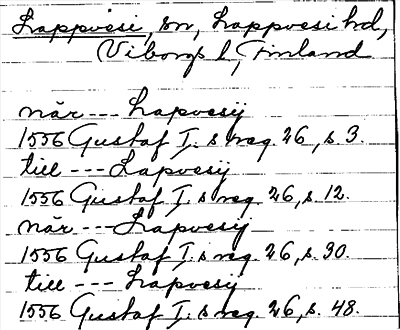 Lappvesi, sn, Lappvesi hd,
Viborgs l, Finland
när --- Lapvesij
1556 Gustaf I. s reg. 26, s. 3.
till --- Lapvesij
1556 Gustaf I. s reg. 26, s. 12.
när --- Lapvesij
1556 Gustaf I. s reg. 26, s. 30.
till --- Lapvesij
1556 Gustaf I. s reg. 26, s. 48.